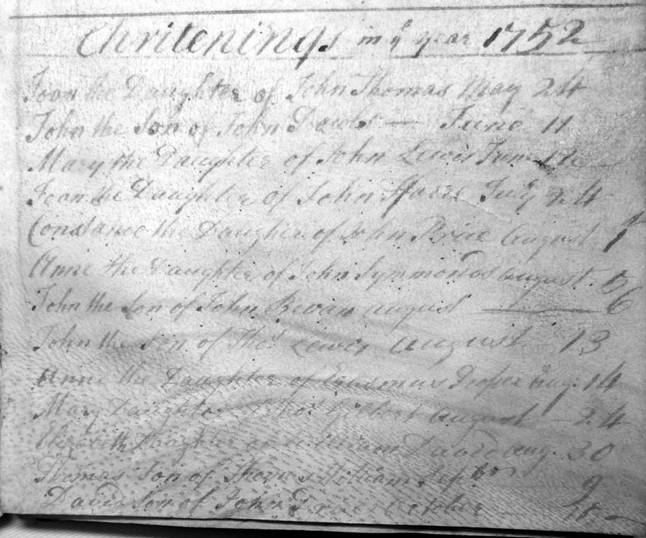 Chritenings in yᵉ year 1752
Joan the Daughter of John Thomas May 24
John the Son of John — June 11
Mary the Daughter of John Lewis June
Joan the Daughter of John July 24
Constance the Daugher of John Price August 1st
Anne the Daughter of John Symmonds august 5
John the Son of John Bevan august 6
John the Son of Thos Lewis August 13
Anne the Daughter of Erasmus Proper aug. 14
Mary Daughter August 24
Elizabeth Daughter William David aug. 30
Thomas Son of William Septbr 9
David Son of John October